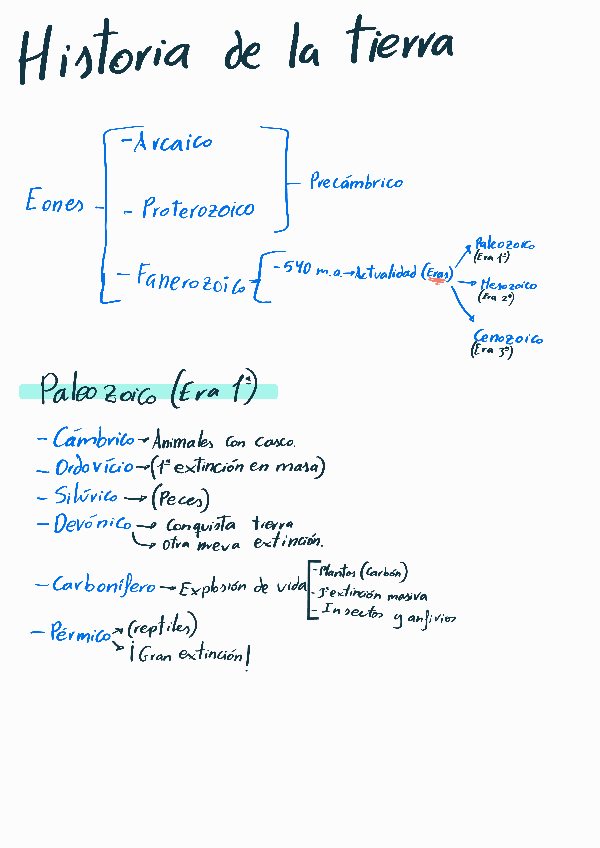 Historia de la tierra
Eones
- Arcaico
- Proterozoico
Precámbrico
- Fanerozoico
- 540 m.a. → Actualidad (Eras)
Paleozoico
(Era 1ª)
Mesozoico
(Era 2ª)
Cenozoico
(Era 3ª)
Paleozoico (Era 1ª)
- Cámbrico → Animales con casco.
- Ordovício → (1ª extinción en masa)
- Silúrico → (Peces)
- Devónico → Conquista tierra
→ Otra nueva extinción.
- Carbonífero → Explosión de vida
- Plantas (Carbón)
- 3ª extinción masiva
- Insectos y anfivios
- Pérmico → (reptiles)
→ ¡Gran extinción!